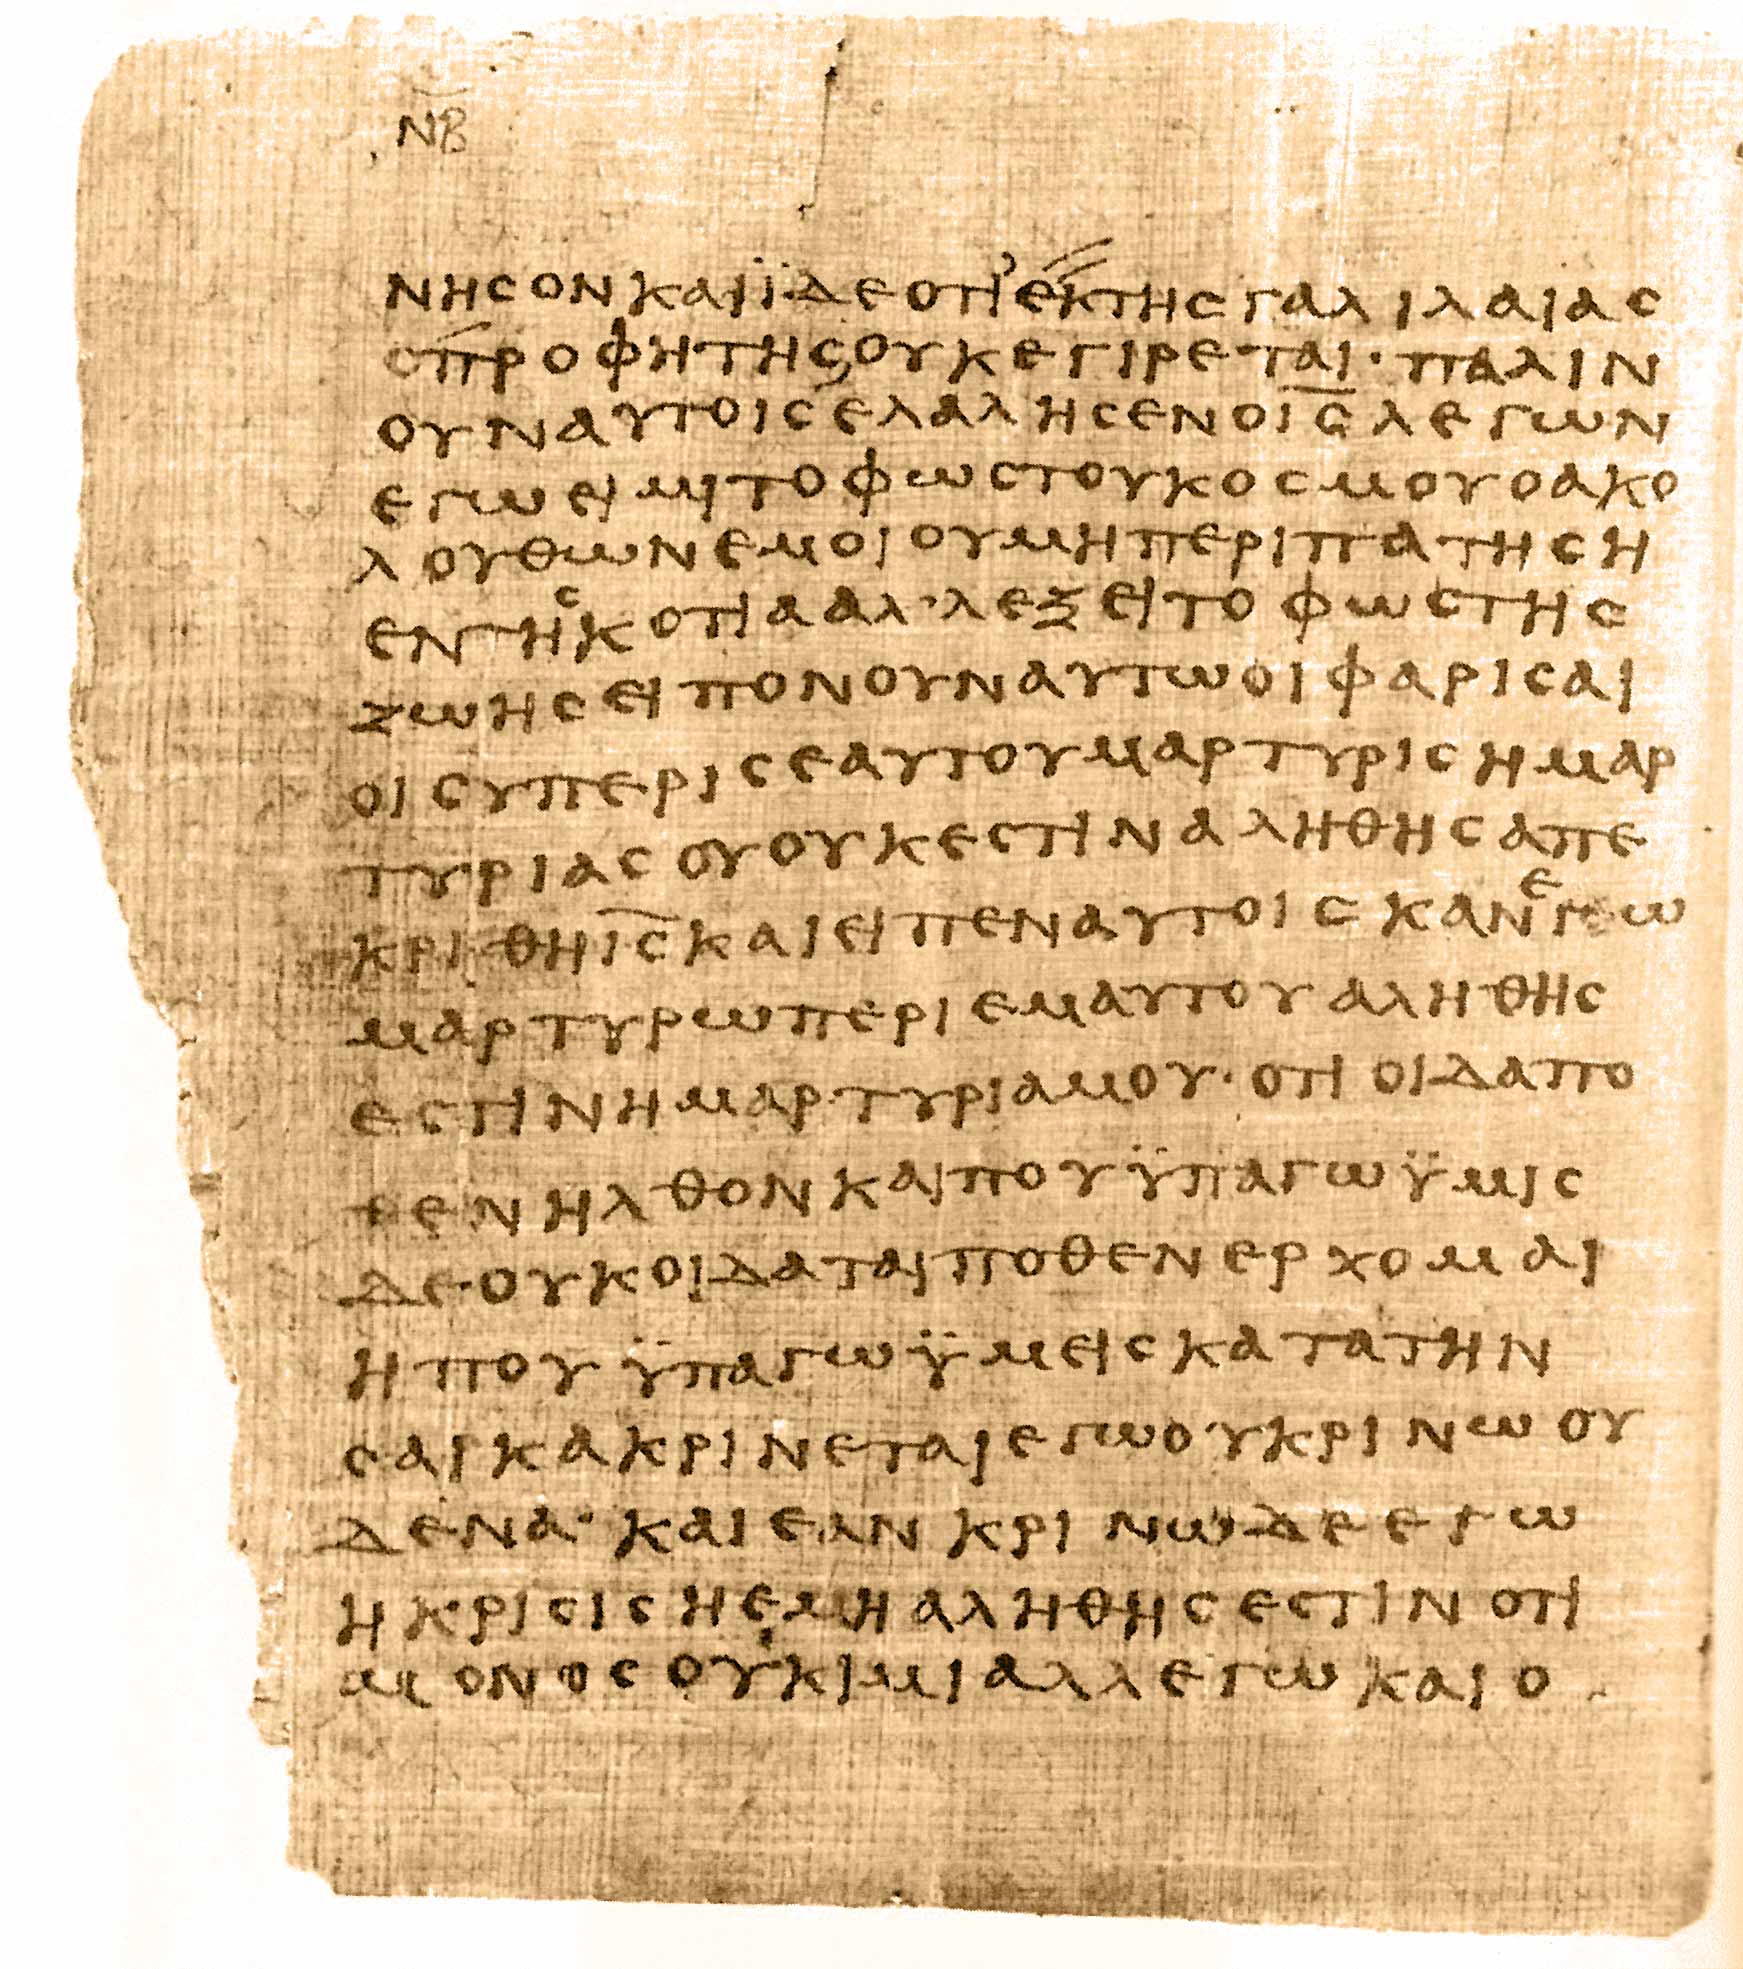 ΝΒ
ΝΗϹΟΝΚΑΙΪΔΕΟΤΙ ̓ΕΚΤΗϹΓΑΛΙΛΑΙΑϹ
ϹΠΡΟΦΗΤΗϹΟΥΚΕΓΙΡΕΤΑΙ·ΠΑΛΙΝ
ΟΥΝΑΥΤΟΙϹΕΛΑΛΗϹΕΝΟΙ̅Ϲ̅ΛΕΓΩΝ
ΕΓΩΕΙΜΙΤΟΦΩϹΤΟΥΚΟϹΜΟΥΟΑΚΟ
ΛΟΥΘΩΝΕΜΟΙΟΥΜΗΠΕΡΙΠΑΤΗϹΗ
ΕΝΤΗϹΚΟΤΙΑΑΛ·ΛΕΞΕΙΤΟΦΩϹΤΗϹ
ΖΩΗϹΕΙΠΟΝΟΥΝΑΥΤΩΟΙΦΑΡΙϹΑΙ
ΟΙϹΥΠΕΡΙϹΕΑΥΤΟΥΜΑΡΤΥΡΙϹΗΜΑΡ
ΤΥΡΙΑϹΟΥΟΥΚΕϹΤΙΝΑΛΗΘΗϹΑΠΕ
ΚΡΙΘΗΙ̅Ϲ̅ΚΑΙΕΙΠΕΝΑΥΤΟΙϹΚΑΝΕΓΩ
ΜΑΡΤΥΡΩΠΕΡΙΕΜΑΥΤΟΥΑΛΗΘΗϹ
ΕϹΤΙΝΗΜΑΡΤΥΡΙΑΜΟΥ·ΟΤΙΟΙΔΑΠΟ
ΘΕΝΗΛΘΟΝΚΑΙΠΟΥΫΠΑΓΩΫΜΙϹ
ΔΕΟΥΚΟΙΔΑΤΑΙΠΟΘΕΝΕΡΧΟΜΑΙ
ΗΠΟΥΫΠΑΓΩΫΜΕΙϹΚΑΤΑΤΗΝ
ϹΑΡΚΑΚΡΙΝΕΤΑΙΕΓΩΟΥΚΡΙΝΩΟΥ
ΔΕΝΑ·ΚΑΙΕΑΝΚΡΙΝΩΔΕΕΓΩ
ΗΚΡΙϹΙϹΗΕΜΗΑΛΗΘΗϹΕϹΤΙΝΟΤΙ
ΜΟΝΟϹΟΥΚΙΜΙΑΛΛΕΓΩΚΑΙΟ